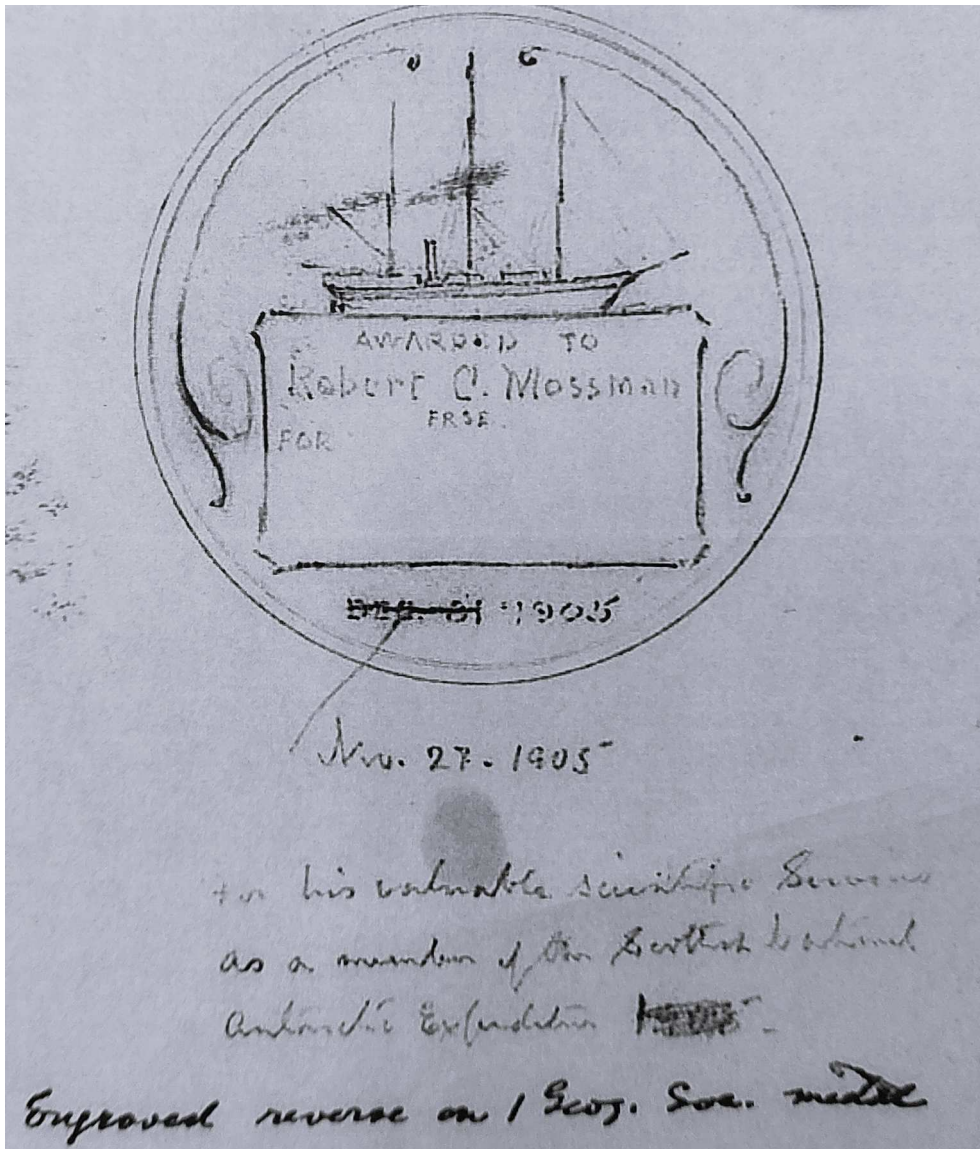 AWARDED TO
Robert C. Mossman
FRSE.
FOR
DEC. 31 1905
Nov. 27. 1905
For his valuable scientific Services
as a member of the Scottish National
Antarctic Expedition
Engraved reverse on 1 Geog. Soc. medal